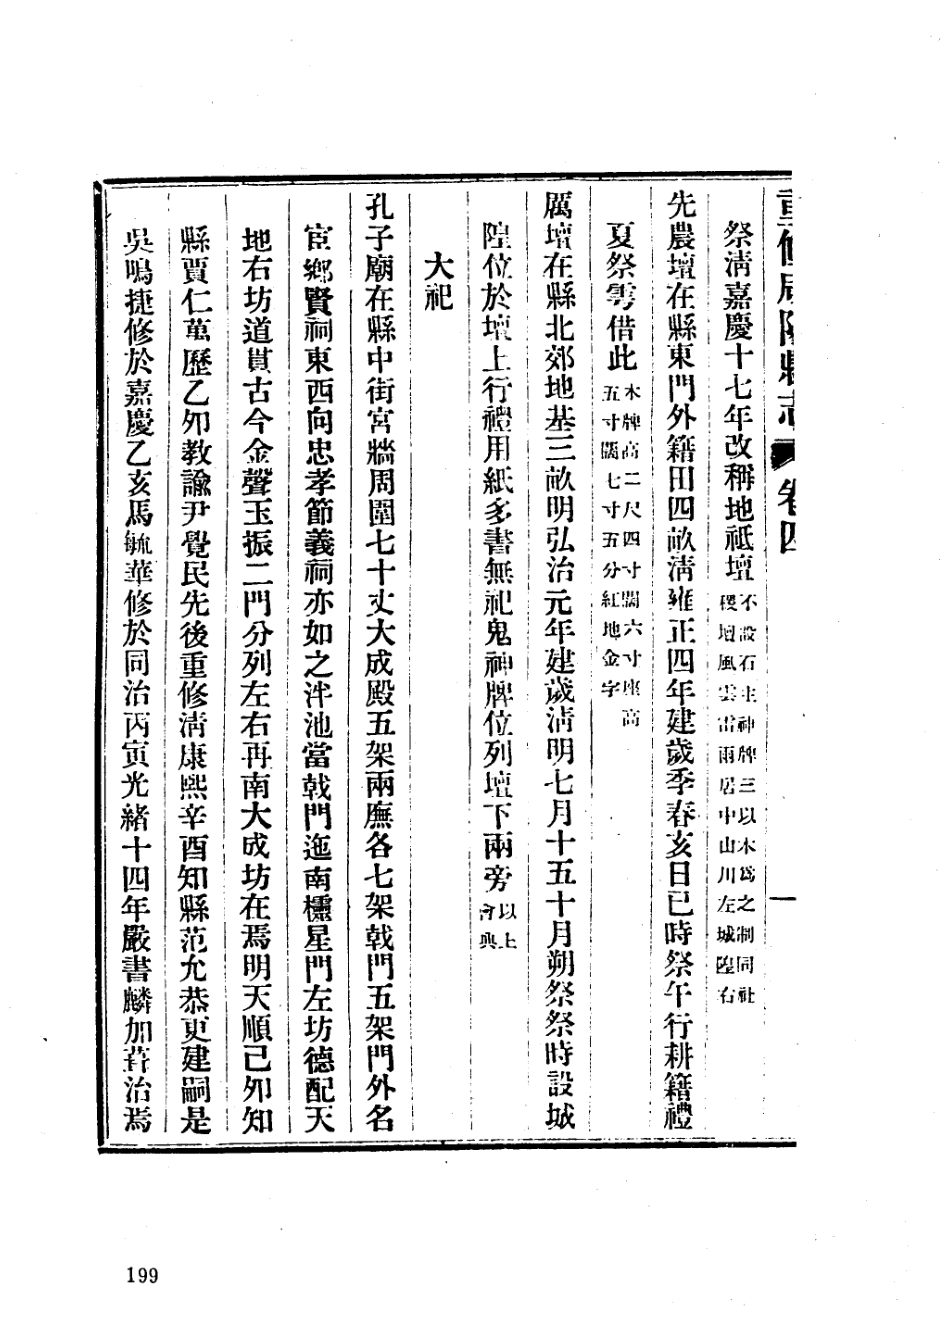 重修咸陽縣志 卷四 一
祭淸嘉慶十七年改稱地祗壇不設石主神牌三以木爲之制同社稷壇風雲雷雨居中山川左城隍右
先農壇在縣東門外籍田四畝淸雍正四年建歲季春亥日巳時祭午行耕籍禮
夏祭雩借此木牌高二尺四寸闊六寸座高五寸闊七寸五分紅地金字
厲壇在縣北郊地基三畝明弘治元年建歲淸明七月十五十月朔祭祭時設城
隍位於壇上行禮用紙多書無祀鬼神牌位列壇下兩旁以上會典
大祀
孔子廟在縣中街宮牆周圍七十丈大成殿五架兩廡各七架戟門五架門外名
宦鄉賢祠東西向忠孝節義祠亦如之泮池當戟門迤南欞星門左坊德配天
地右坊道貫古今金聲玉振二門分列左右再南大成坊在焉明天順己卯知
縣賈仁萬歷乙卯教諭尹覺民先後重修淸康熙辛酉知縣范允恭更建嗣是
吳鳴捷修於嘉慶乙亥馬毓華修於同治丙寅光緒十四年嚴書麟加葺治焉
199